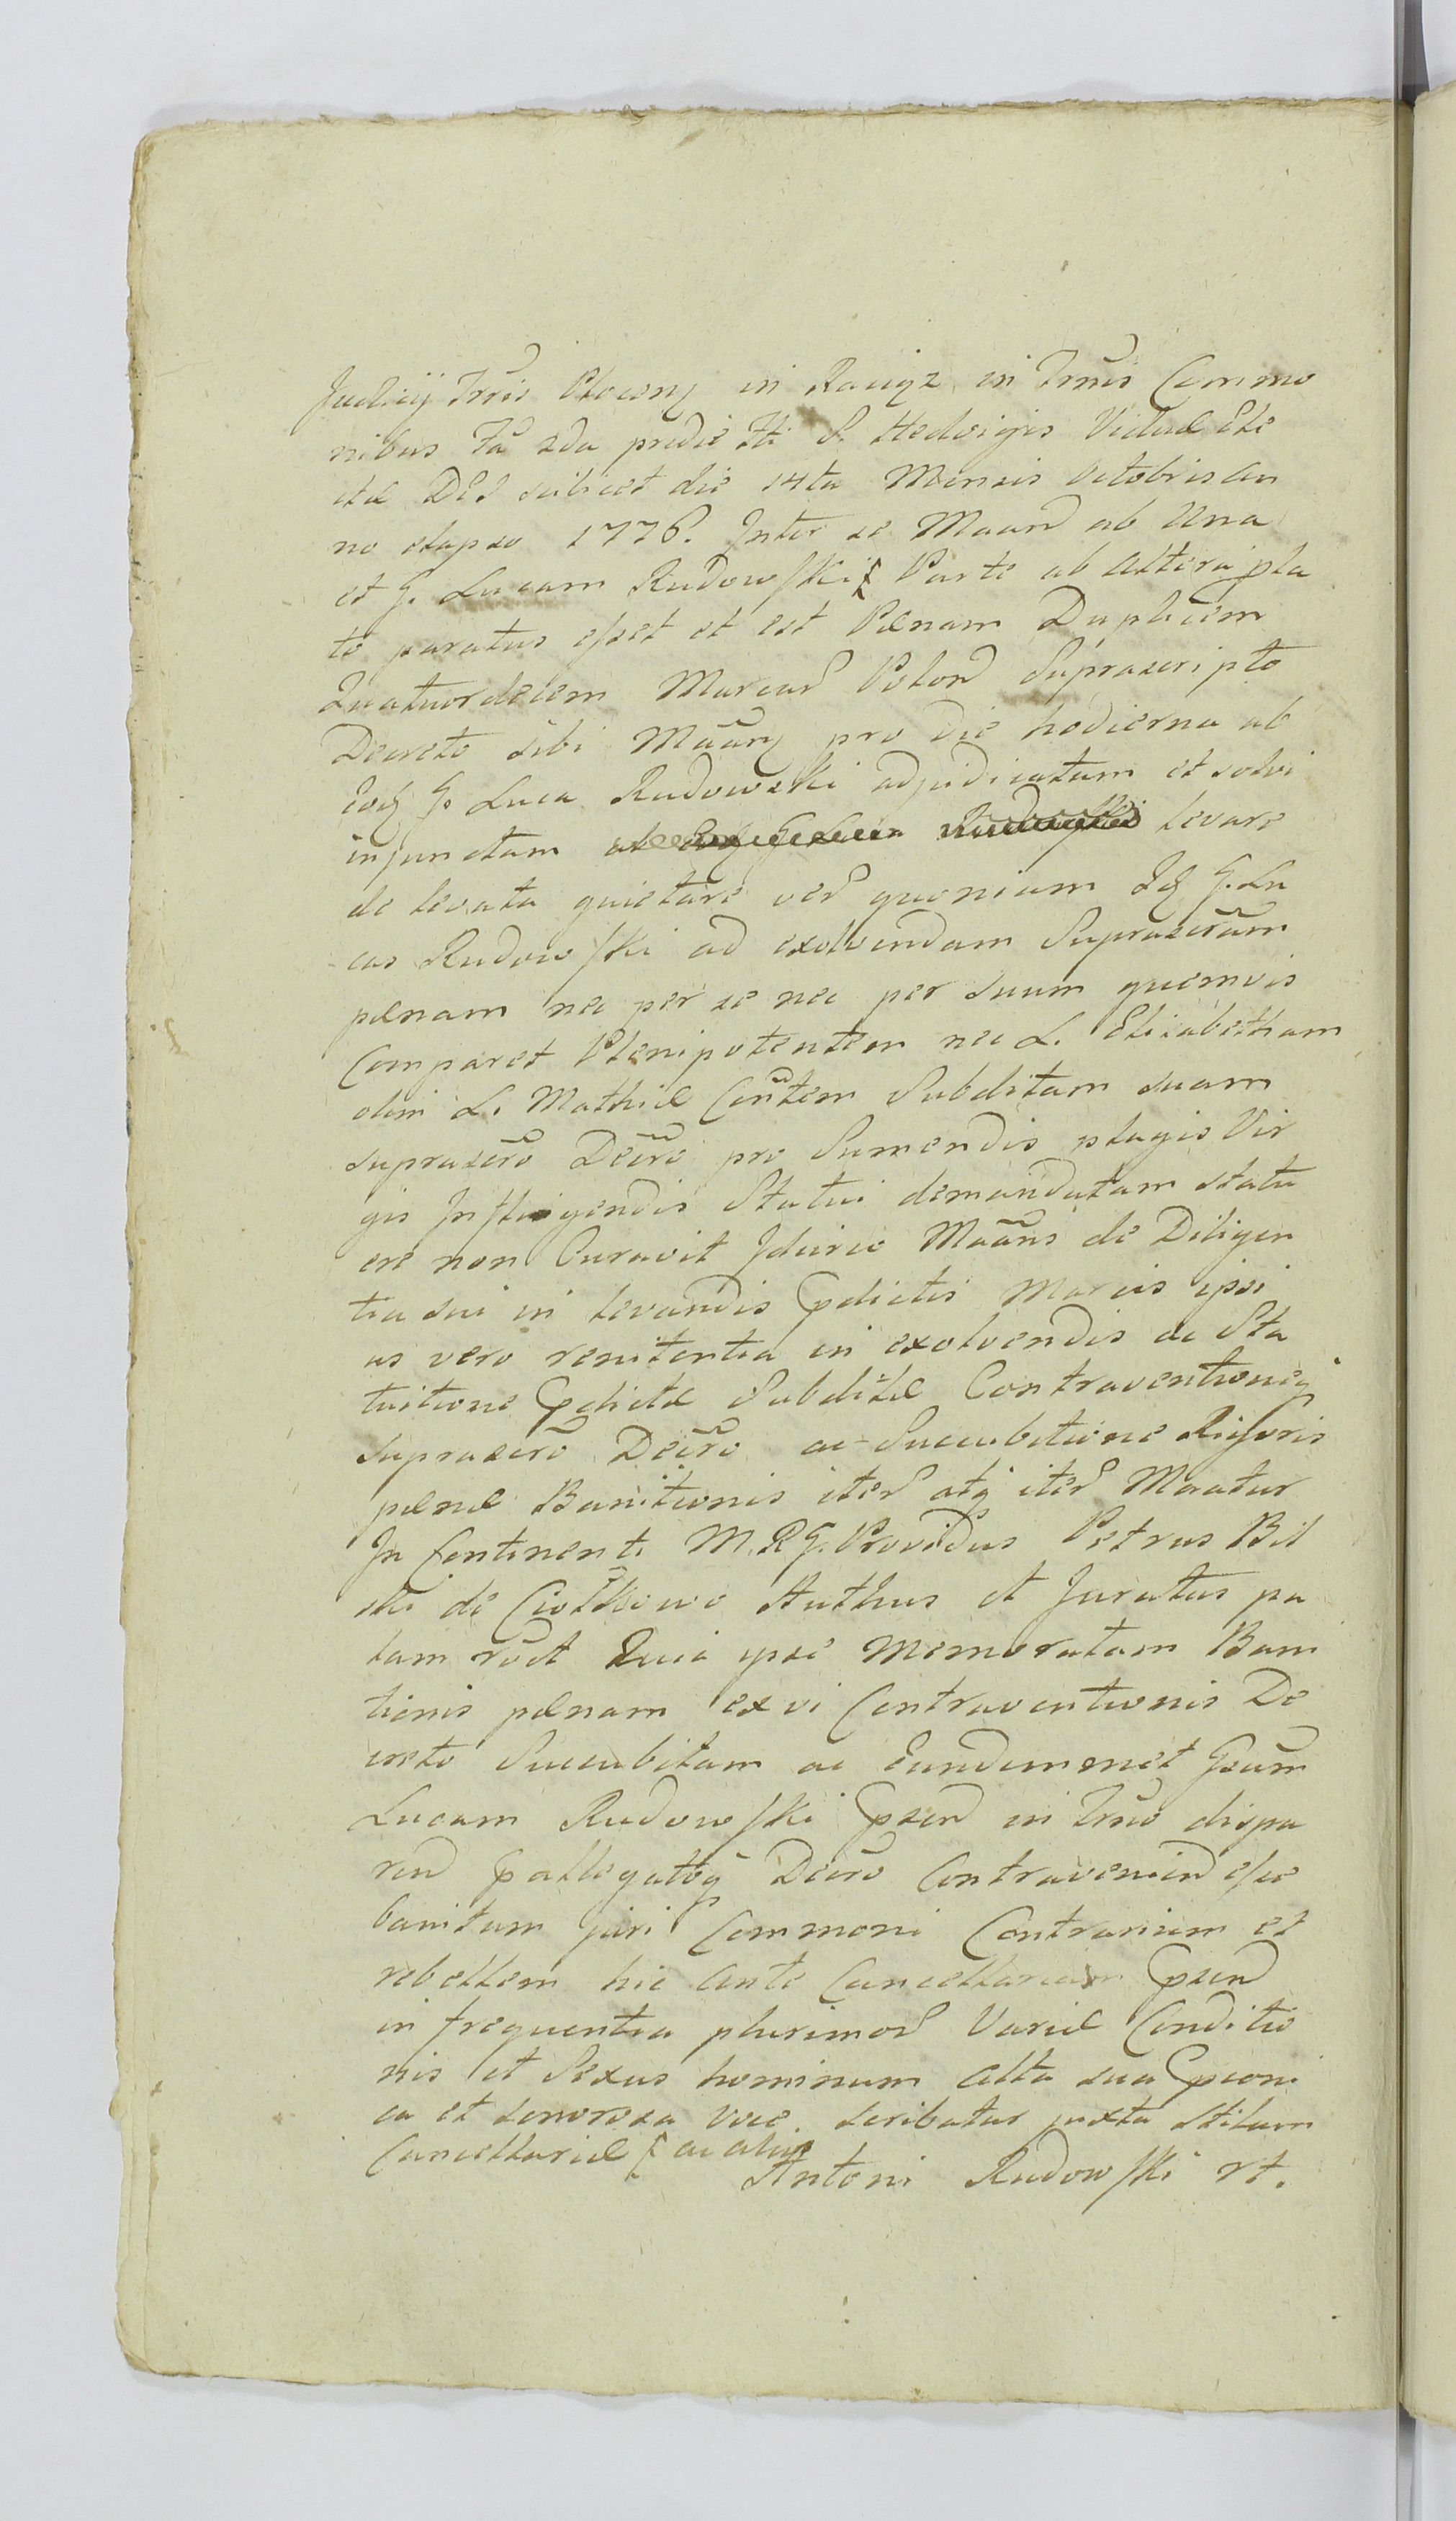 Judicij Trris Plocens in Raciąz in Trmis Commo
nibus Fa 2da pridie Fti S. Hedvigis Viduæ Ele
ctæ DEI scilicet die 14ta Mensis Octobris an
no elapso 1776. Inter se Maand ab Una
et G. Lucam Rudowski Parte ab Altera pla
te paratus esset et est Pænam Duplicem
Quatuordecem Marcar Polon Suprascripto
Decreto sibi Maang pro die hodierna ab
Eod G. Luca Rudowski adjudicatam et solvi
injunctam levare
de levata quietare ver quoniam Id G. Lu
cas Rudowski ad exolvendam Suprascram
pænam nec per se nec per suum quemvis
Comparet Plenipotentem nec L. Elisabetham
olim L. Mathiæ Contem Subditam suam
suprascro Decro pro Sumendis plagis Vir
gis Infligendis Statui demandatam statu
ere non Curavit Idcirco Maans de Diligen
tia sui in levandis Pdictis Marcis ipsi
us vero renitentia in exolvendis ac Sta
tuitione Pdictæ Subditæ Contraventioneq
suprascro Decro ac Succubitione Rigoris
pænæ Banitionis iter atq iter Maatur
In Continenti M.R.G. Providus Petrus Bil
ski de Ciołkowo Authus et Juratus pa
lam rect Quia ipse Memoratam Bani
tionis pænam ex vi Contraventionis De
creto Succubitam ac Eundemmet Gsum
Lucam Rudowski Psend in Trno dispa
rend Pallegatoq Decro Contraveniend esse
banitum juri Commoni Contrarium et
rebellem hic ante Cancellariam Psend
in frequentia plurimor Variæ Conditio
nis et Sexus hominum alta sua Pconi
ca et sonorosa voce. scribatur juxta Stilum
Cancellariæ ac
Antoni Rudowski rt.